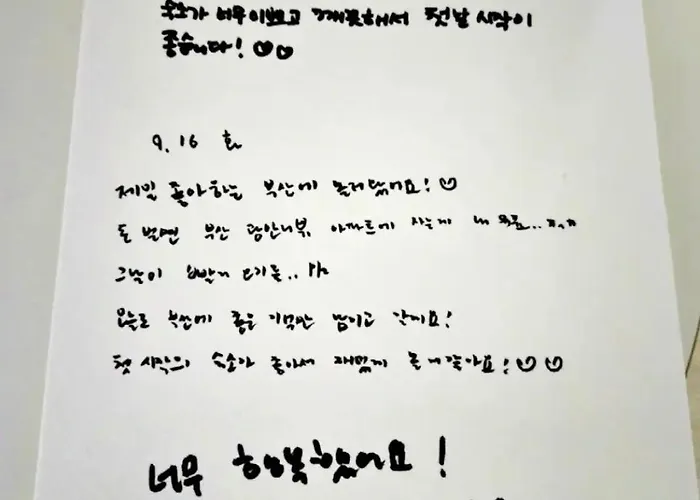 숙소가 너무 이쁘고 깨끗해서 첫날 시작이
좋습니다! ♡♡
9. 16 화
제일 좋아하는 부산에 놀러왔어요! ♡
돈 벌면 부산 광안리뷰 아파트에 사는게 내 목표.. ㅠ.ㅠ
그날이 빨리 오기를.. ㅎ
오늘도 부산에 좋은 기억만 남기고 갈게요!
첫 시작의 숙소가 좋아서 재밌게 놀거같아요! ♡♡
너무 행복했어요!